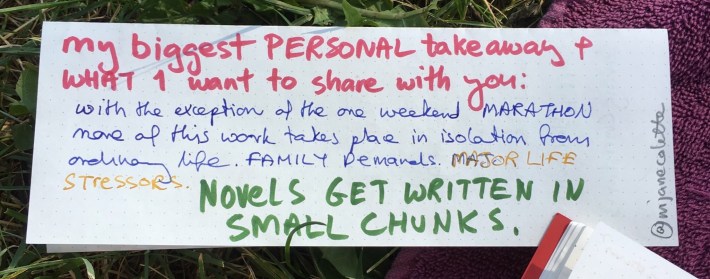 my biggest PERSONAL takeaway +
WHAT I want to share with you:
with the exception of the one weekend MARATHON
none of this work takes place in isolation from
ordinary life. FAMILY Demands. MAJOR LIFE
STressors.
NOVELS GET WRITTEN IN
SMALL CHUNKS.
@mjanecolette